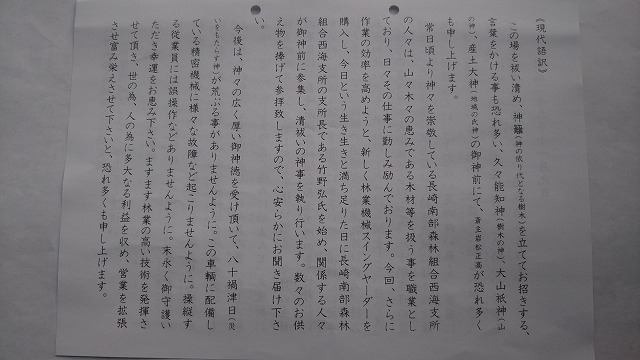 《現代語訳》
この場を祓い清め、神籬(神の依り代となる樹木)を立ててお招きする、
言葉をかける事も恐れ多い、久々能知神(樹木の神)、大山祇神(山
の神)、産土大神(地域の氏神)の御神前にて、斎主岩松正高が恐れ多く
も申し上げます。
常日頃より神々を崇敬している長崎南部森林組合西海支所
の人々は、山々木々の恵みである木材等を扱う事を職業とし
ており、日々その仕事に勤しみ励んでおります。今回、さらに
作業の効率を高めようと、新しく林業機械スイングヤーダーを
購入し、今日という生き生きと満ち足りた日に長崎南部森林
組合西海支所の支所長である竹野弘氏を始め、関係する人々
が御神前に参集し、清祓いの神事を執り行います。数々のお供
え物を捧げて参拝致しますので、心安らかにお聞き届け下さ
い。
今後は、神々の広く厚い御神徳を受け頂いて、八十禍津日(災
いをもたらす神)が荒ぶる事がありませんように。この車輌に配備し
ている精密機械に様々な故障など起こりませんように。操縦す
る従業員には誤操作などありませんように。末永く御守護い
ただき幸運をお恵み下さい。ますます林業の高い技術を発揮さ
せて頂き、世の為、人の為に多大なる利益を収め、営業を拡張
させ富み栄えさせて下さいと、恐れ多くも申し上げます。